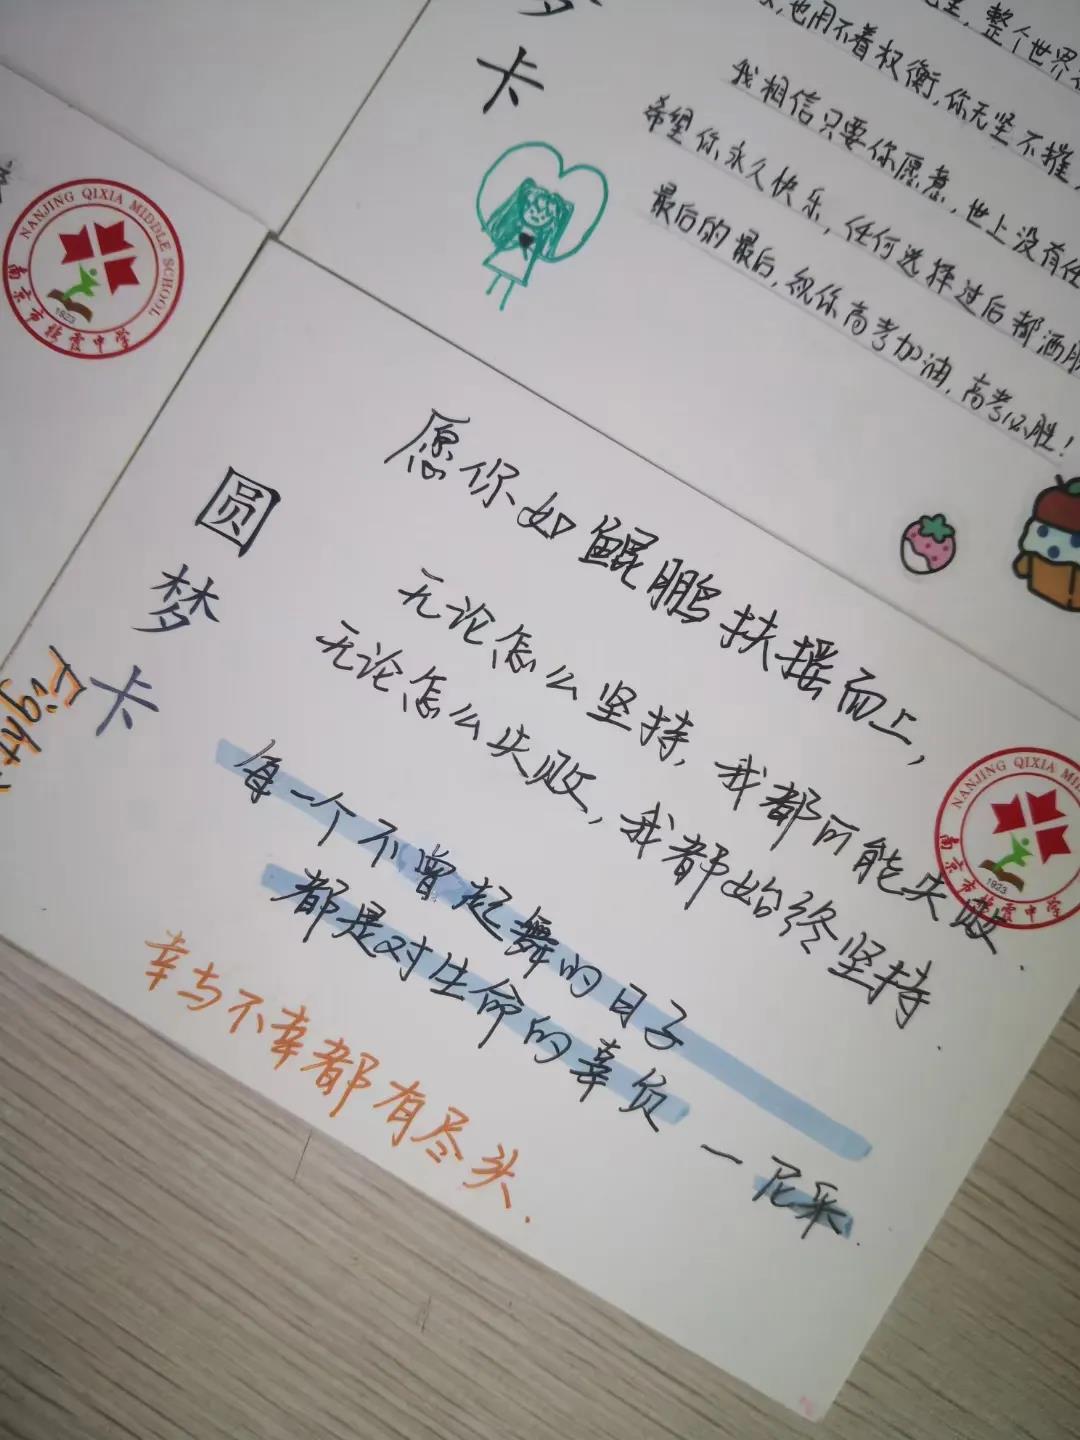 梦
卡
整个世界
也用不着权衡,你无坚不摧
我相信只要你愿意,世上没有任
希望你永久快乐,任何选择过后都洒脱
最后的最后,祝你高考加油,高考必胜!
NANJING QIXIA MIDDLE SCHOOL
1923
南京市栖霞中学
圆
梦
卡
Fight
愿你如鲲鹏扶摇而上,
无论怎么坚持,我都可能失败.
无论怎么失败,我都始终坚持.
每一个不曾起舞的日子
都是对生命的辜负
—尼采.
幸与不幸都有尽头.
NANJING QIXIA MID
1923
南京市栖霞中学